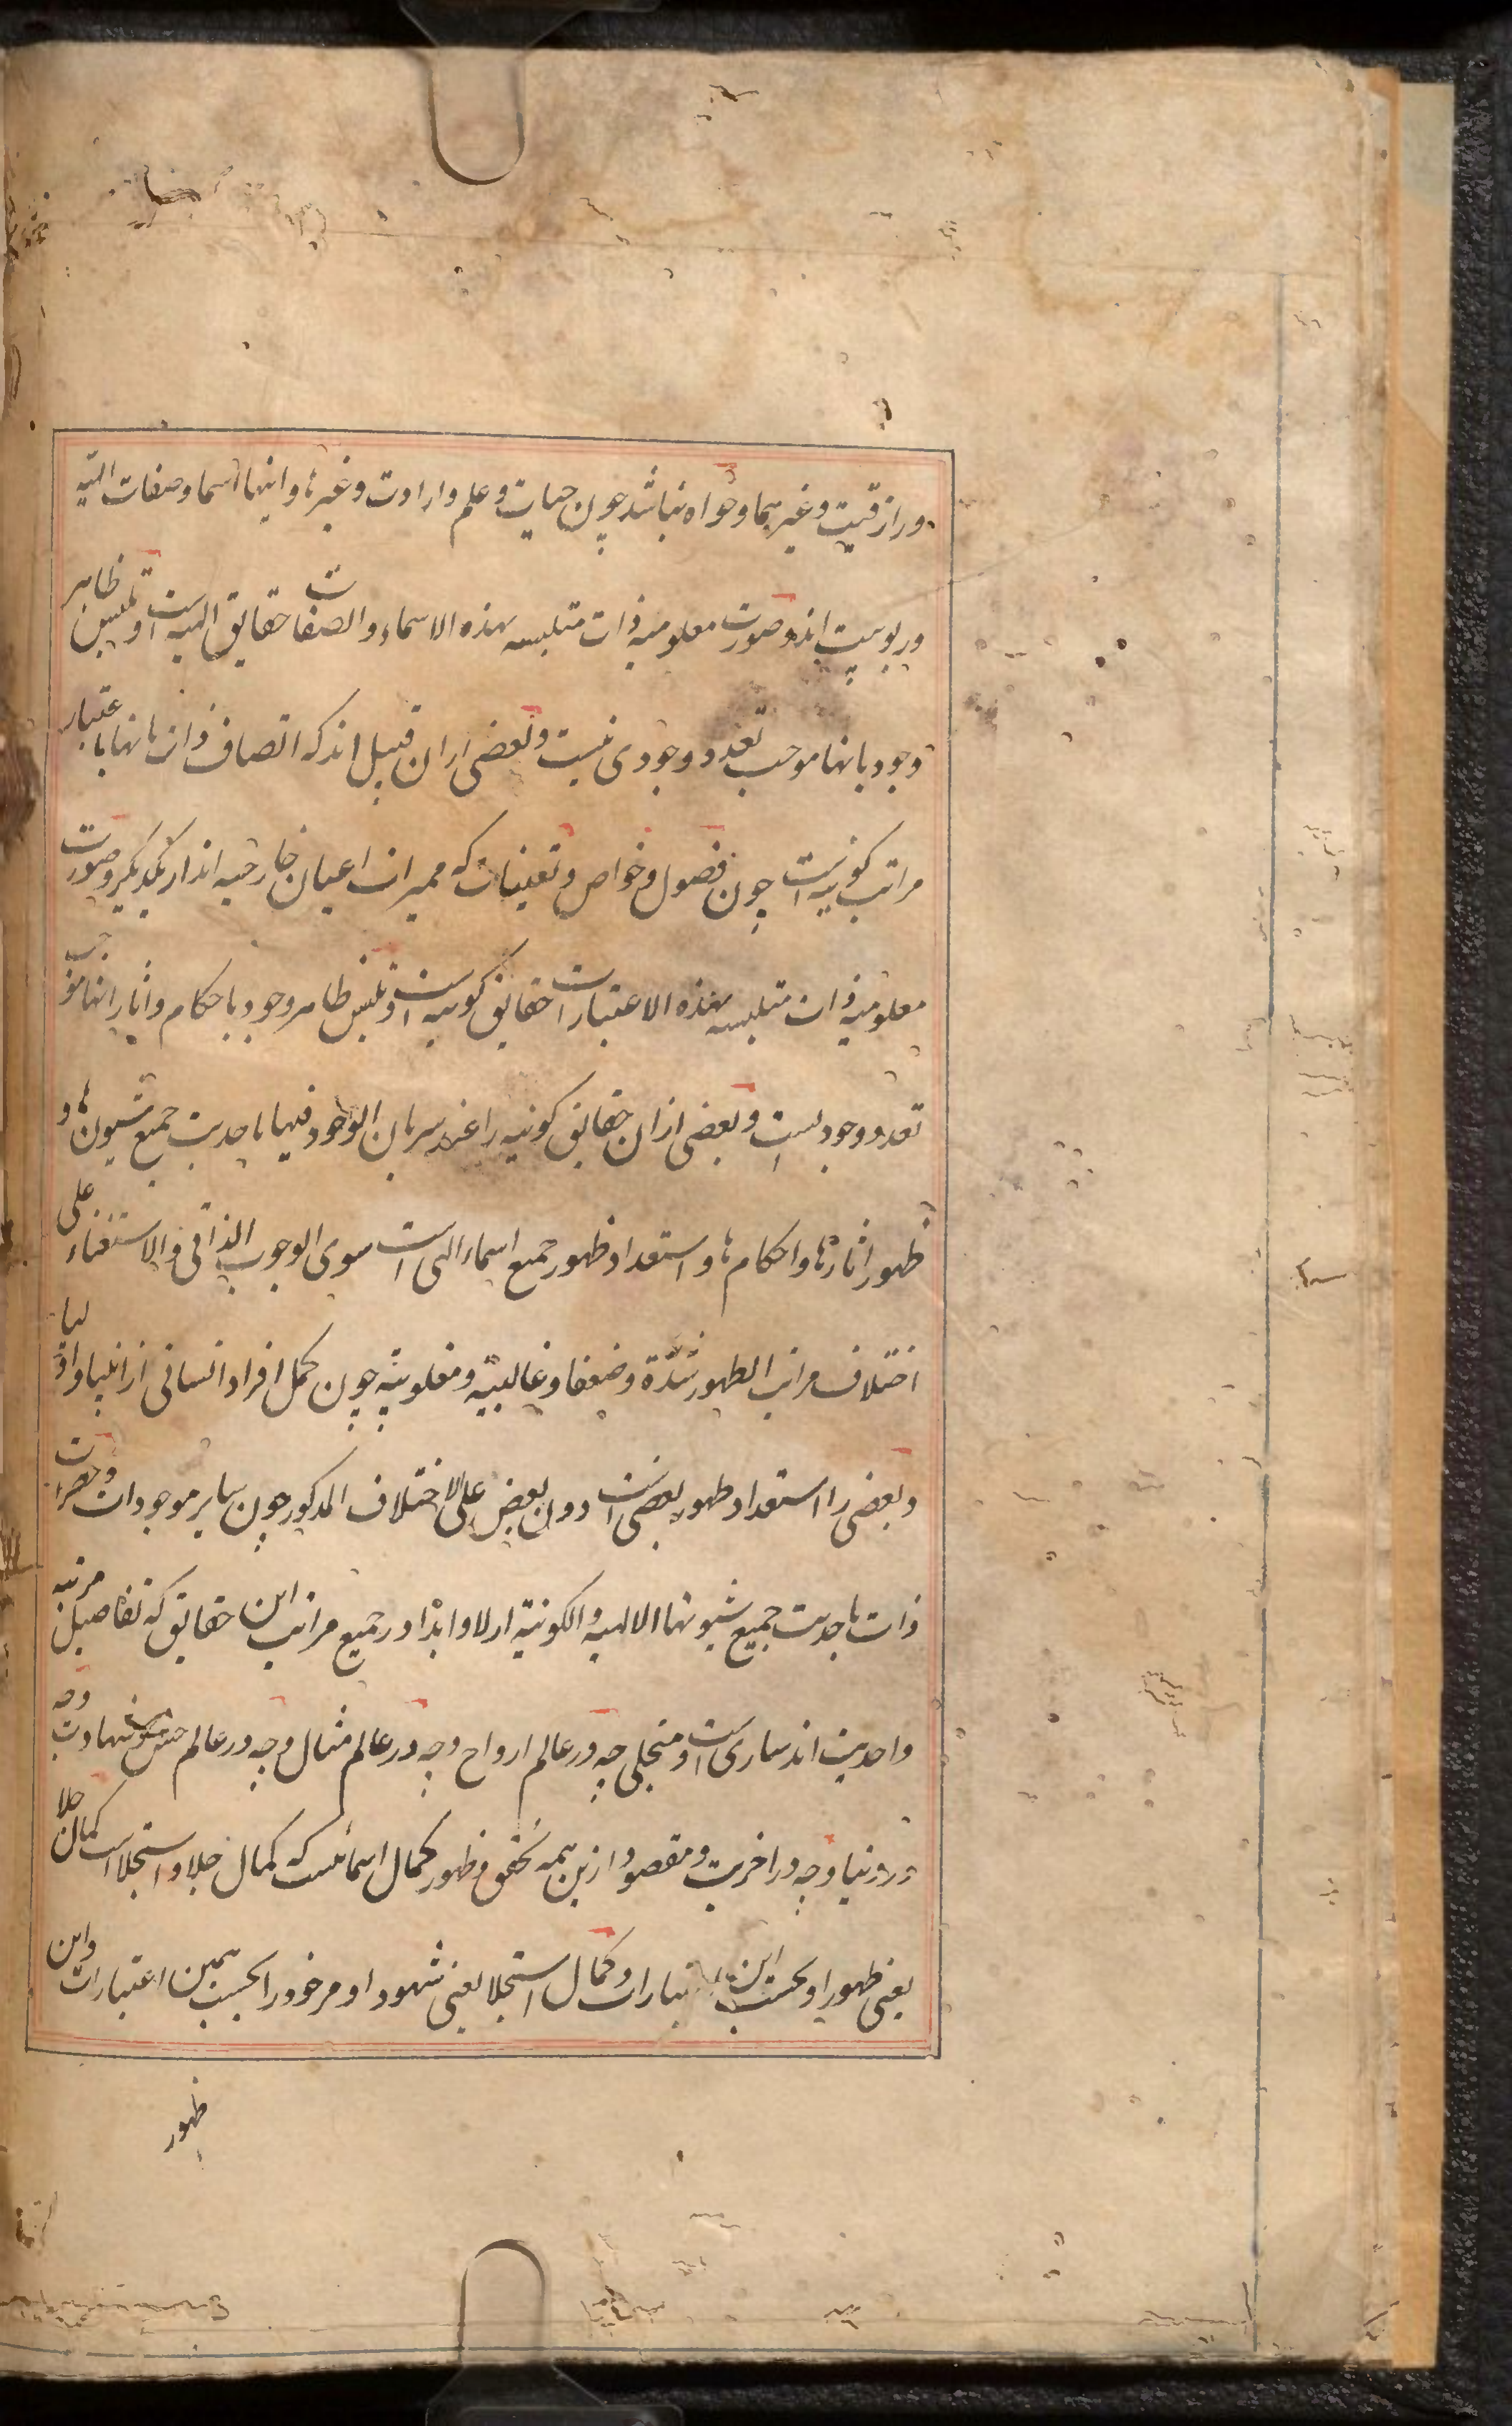 ورازقیت وغیرهما وخواه نباشد چون حیات وعلم وارادت وغیرها واینها اسما وصفات الهیه
وربوبیت اند وصورت معلومیه ذات متلبسه بهذه الاسماء والصفات حقایق الهیه است وتلبس ظاهر
وجود بانها موجب تعدد وجودی نیست وبعضی ازان قبیل اند که اتصاف ذات بانها باعتبار
مراتب کونیه است چون فصول وخواص وتعینات که ممیزات اعیان خارجیه اند از یکدیگر وصورت
معلومیه ذات متلبسه بهذه الاعتبارات حقایق کونیه است وتلبس ظاهر وجود باحکام واثار انها موجب
تعدد وجودیست وبعضی ازان حقایق کونیه را عند سریان الوجود فیها باحدیت جمیع شیونها و
ظهور اثارها واحکامها واستعداد ظهور جمیع اسماء الهی است سوی الوجوب الذاتی والاستغناء علی
اختلاف مراتب الظهور شدة وضعفا وغالبیة ومغلوبیة چون کمل افراد انسانی از انبیا واولیا
وبعضی را استعداد ظهور بعضی است دون بعض علی الاختلاف المذکور چون سایر موجودات وحضرات
ذات باحدیت جمیع شیونها الالهیه والکونیة ازلا وابدا در جمیع مراتب این حقایق که تفاصیل مرتبه
واحدیت اند ساری است ومتجلی چه در عالم ارواح وچه در عالم مثال وچه در عالم حس وشهادت وچه
در دنیا وچه در اخرت ومقصود ازین همه تحقق وظهور کمال اسمائیست که کمال جلا واستجلا است کمال جلا
یعنی ظهور او بحسب این اعتبارات وکمال استجلا یعنی شهود او مر خود را بحسب همین اعتبارات واین
ظهور